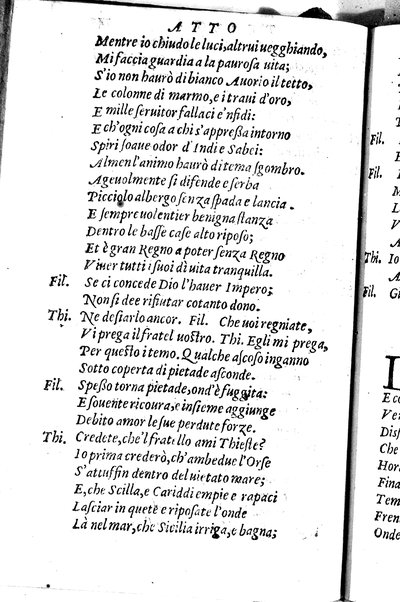 ATTO
Mentre io chiudo le luci, altrui uegghiando,
Mi faccia guardia a la paurosa uita;
S'io non haurò di bianco Auorio il tetto,
Le colonne di marmo, e i traui d'oro,
E mille seruitor fallaci e'nfidi:
E ch'ogni cosa a chi s'appressa intorno
Spiri soaue odor d'Indi e Sabei:
Almen l'animo haurò di tema sgombro.
Ageuolmente si difende e serba
Picciolo albergo senza spada e lancia.
E sempre uolentier benigna stanza
Dentro le basse case alto riposo;
Et è gran Regno a poter senza Regno
Viuer tutti i suoi dì uita tranquilla.
Fil. Se ci concede Dio l'hauer Impero;
Non si dee rifiutar cotanto dono.
Thi. Ne desiarlo ancor. Fil. Che uoi regniate,
Vi prega il fratel uostro. Thi. Egli mi prega,
Per questo i temo. Qualche ascoso inganno
Sotto coperta di pietade asconde.
Fil. Speßo torna pietade, ond'è fuggita:
E souente ricoura, e insieme aggiunge
Debito amor le sue perdute forze.
Thi. Credete, che'l fratello ami Thieste?
Io prima crederò, ch'ambedue l'Orse
S'attuffin dentro del uietato mare;
E, che Scilla, e Cariddi empie e rapaci
Lasciar in quete e riposate l'onde
Là nel mar, che Sicilia irriga, e bagna;
Fil.
Fil.
Thi. Io
Fil. Gi
E co
Ver
Disf
Che
Hor
Fina
Tem
Fren
Onde